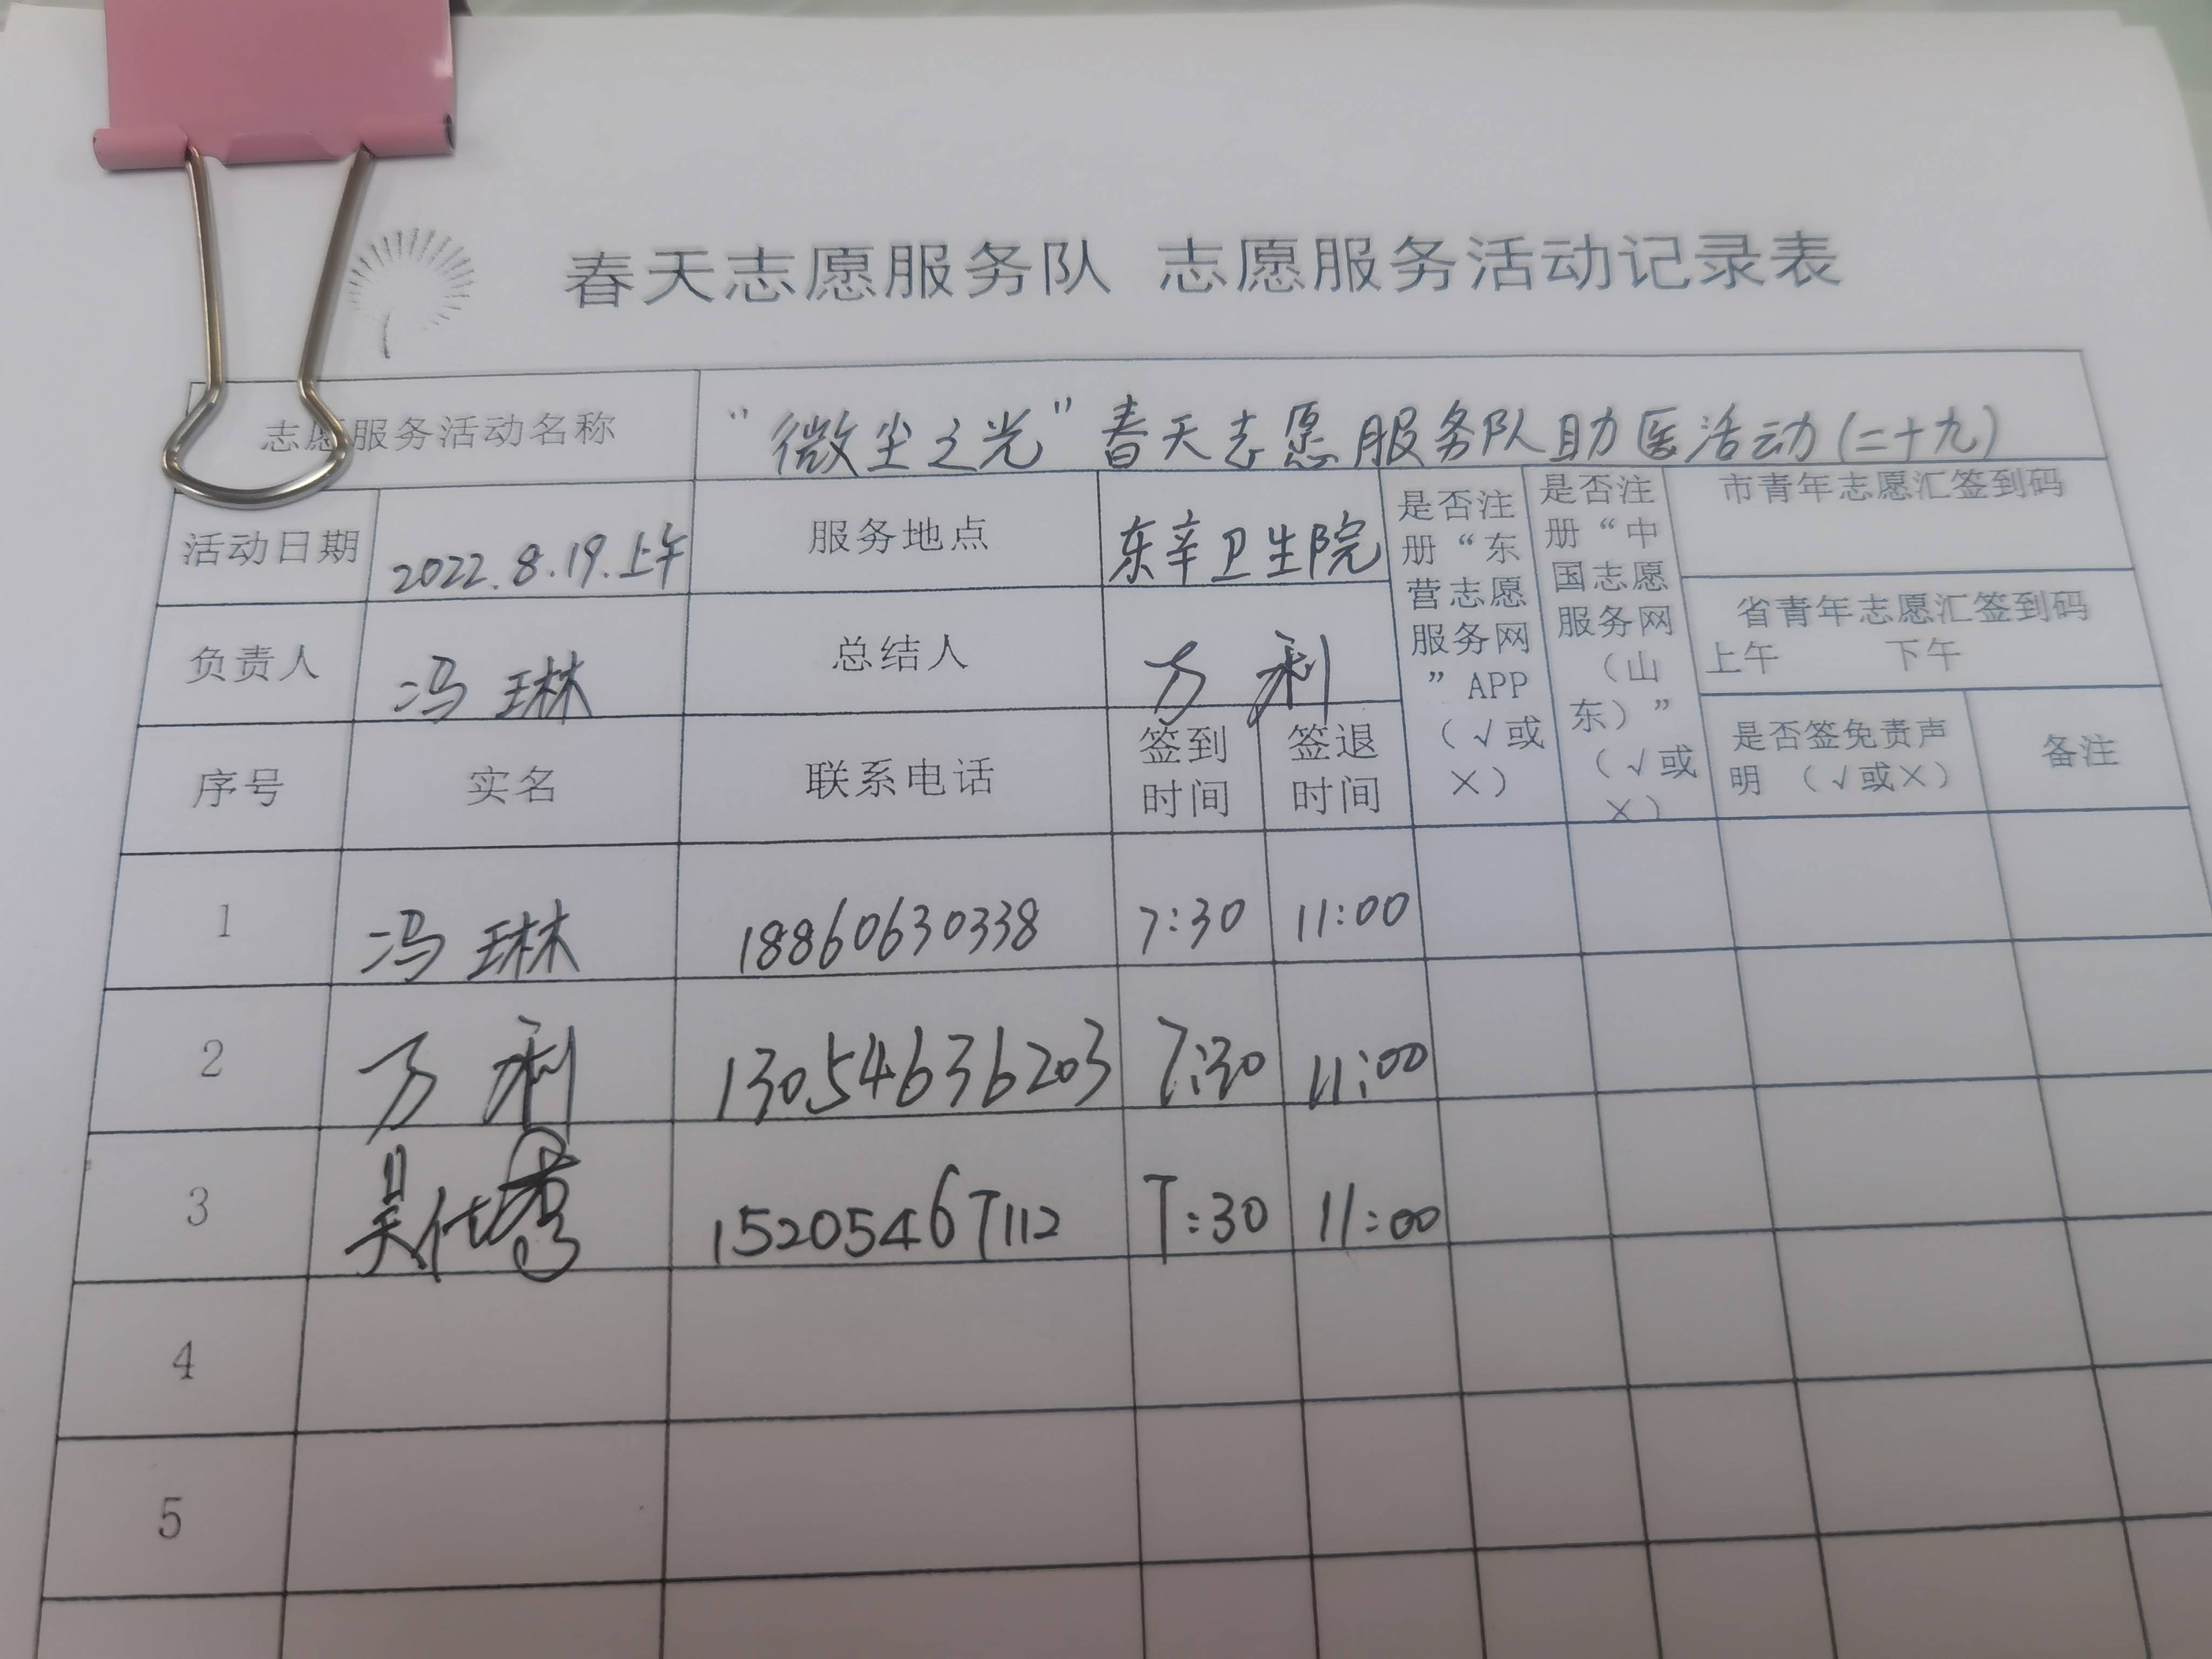 春天志愿服务队 志愿服务活动记录表
志愿服务活动名称 “微尘之光”春天志愿服务队助医活动(二十九)
活动日期 2022.8.19.上午 服务地点 东辛卫生院
负责人 冯琳 总结人 万利
是否注
册“东
营志愿
服务网
”APP
(√或
×)
是否注
册“中
国志愿
服务网
(山
东)”
(√或
×)
市青年志愿汇签到码
省青年志愿汇签到码
上午 下午
序号 实名 联系电话
签到
时间
签退
时间
是否签免责声
明 (√或×)
备注
1 冯琳 18860630338 7:30 11:00
2 万利 13054636203 7:30 11:00
3 吴仕秀 15205467112 7:30 11:00
4
5